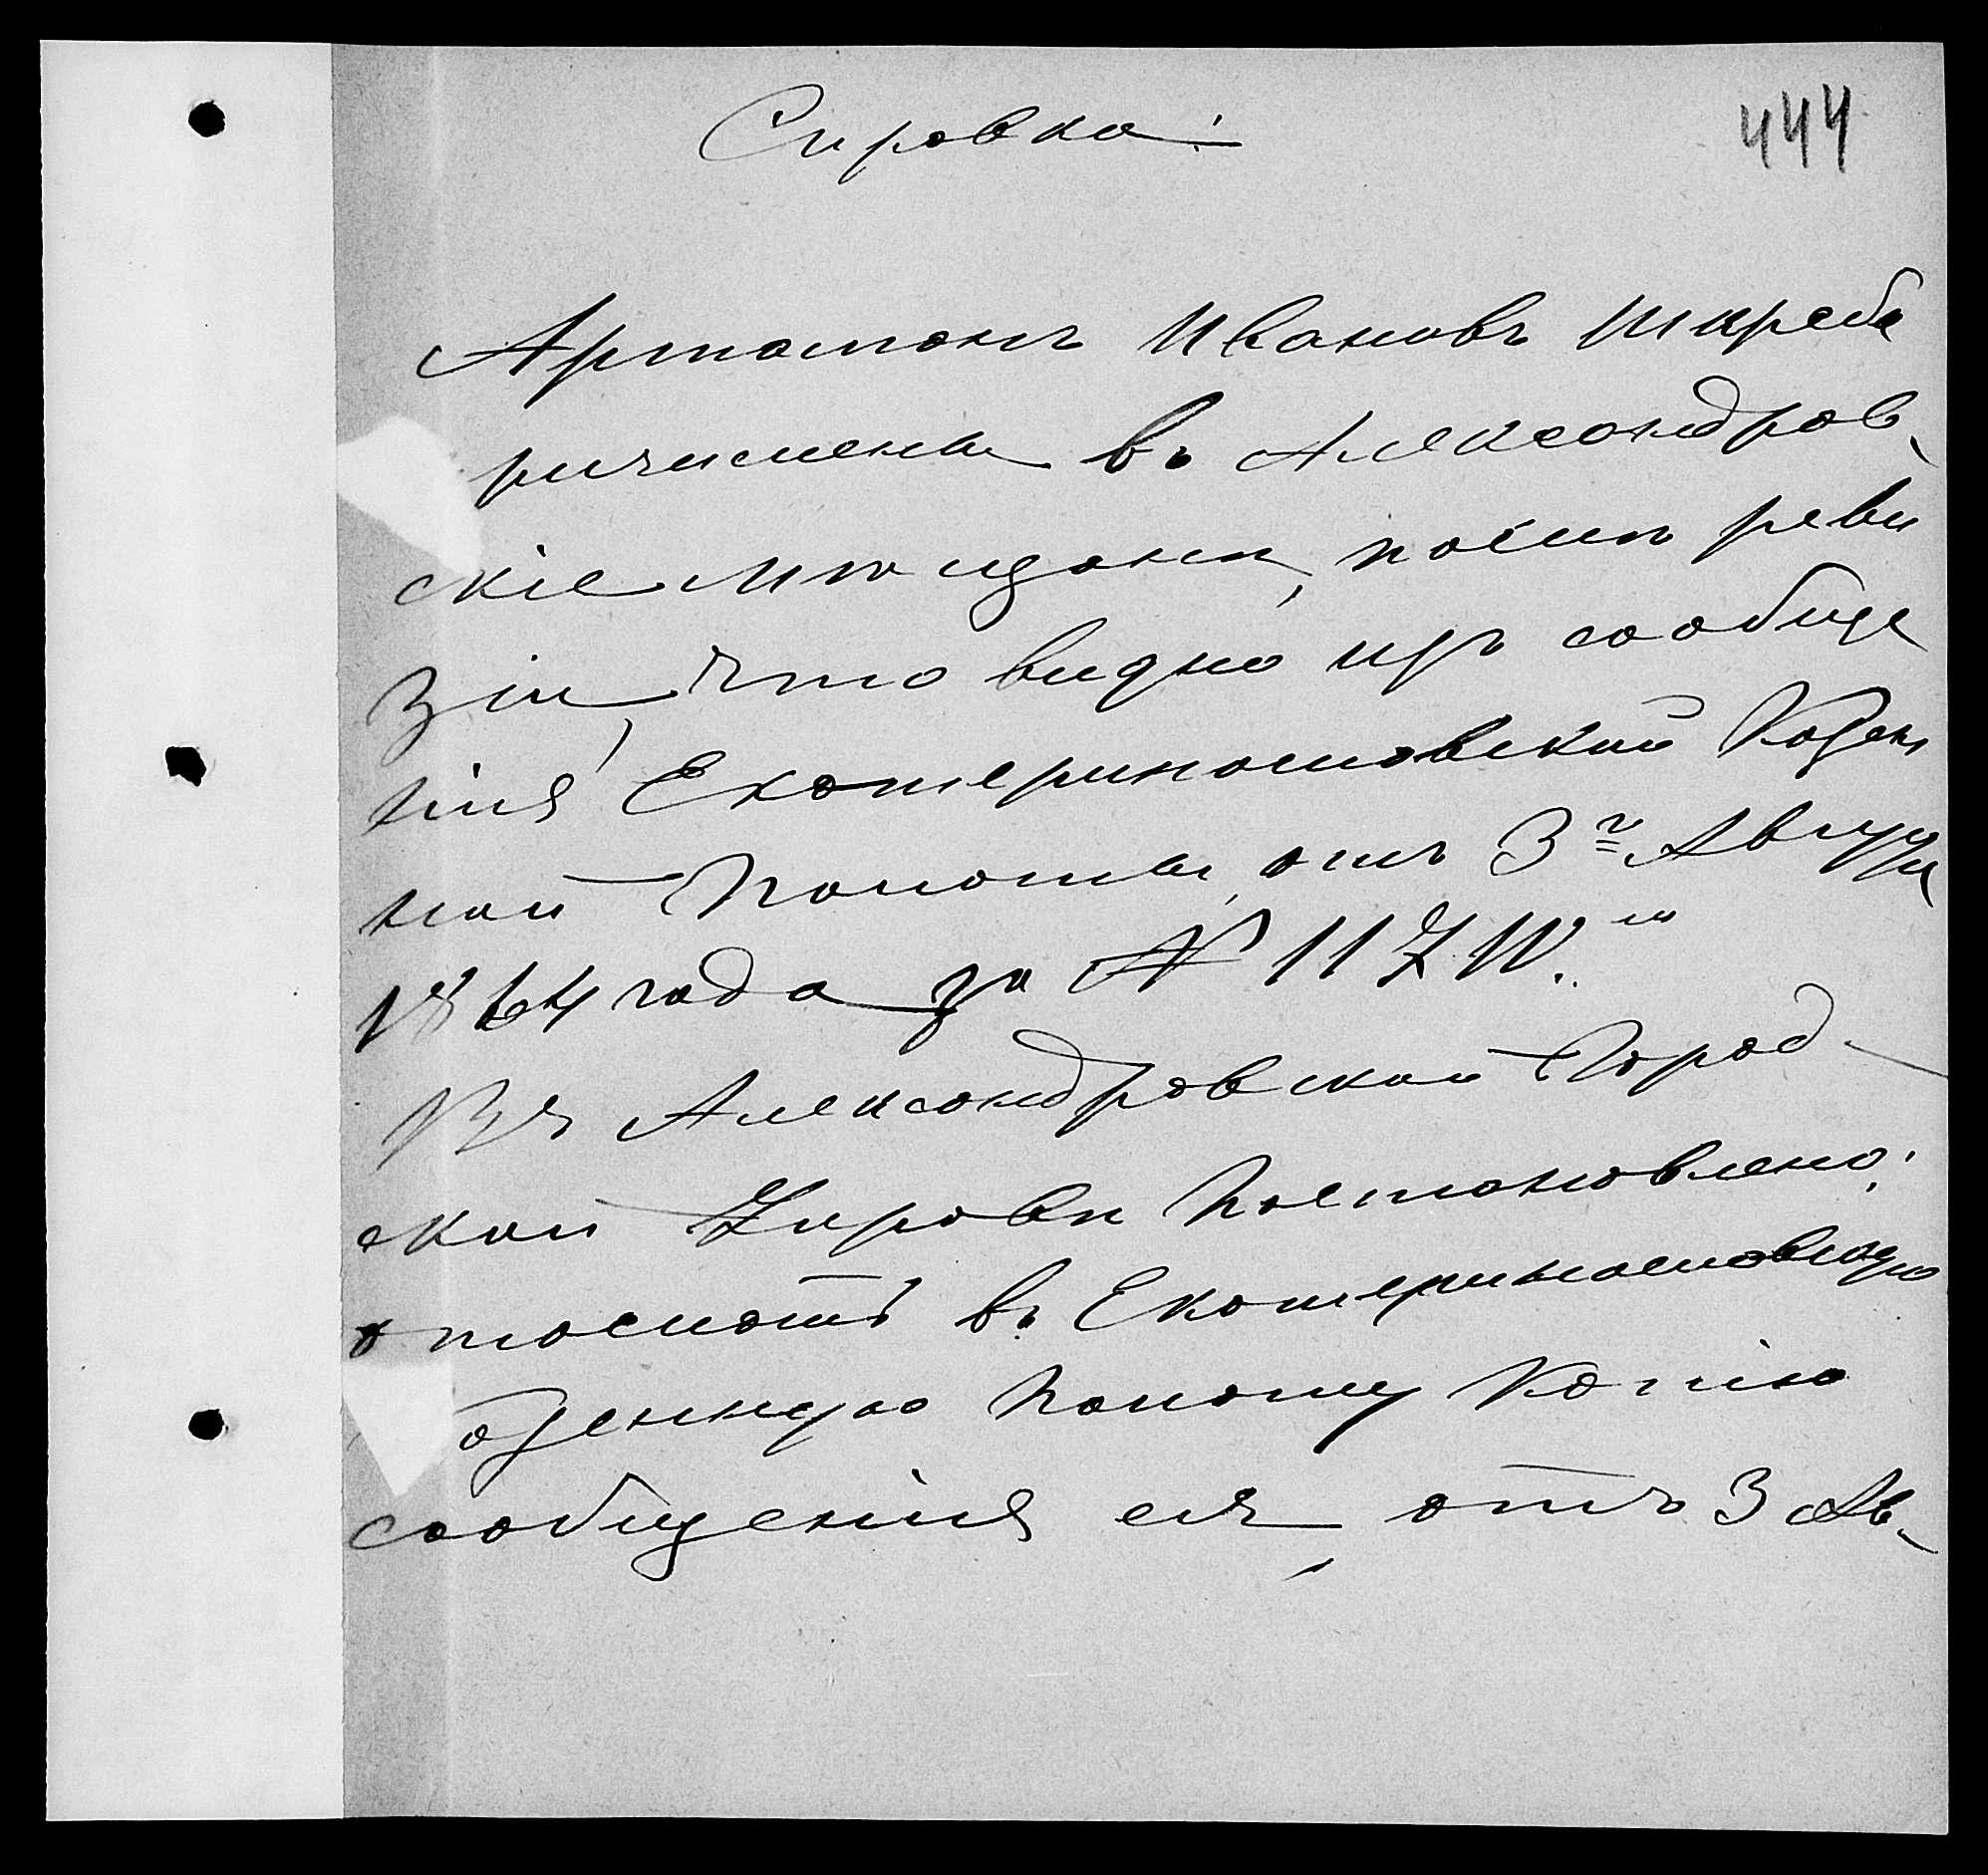 Справка:
444
Артамонъ Ивановъ Шкреба
ричисленъ въ Александров-
скіе мѣщани, послѣ реви
зіи, что видно изъ сообще
нія Екатеринославской Казен
ной Палаты, отъ 3го Августа
1864 года за №
Въ Александровской Город-
ской Управѣ постановлено:
отослать въ Екатеринославскую
азенную Палату Копію
сообщенія ея, отъ 3 Ав-